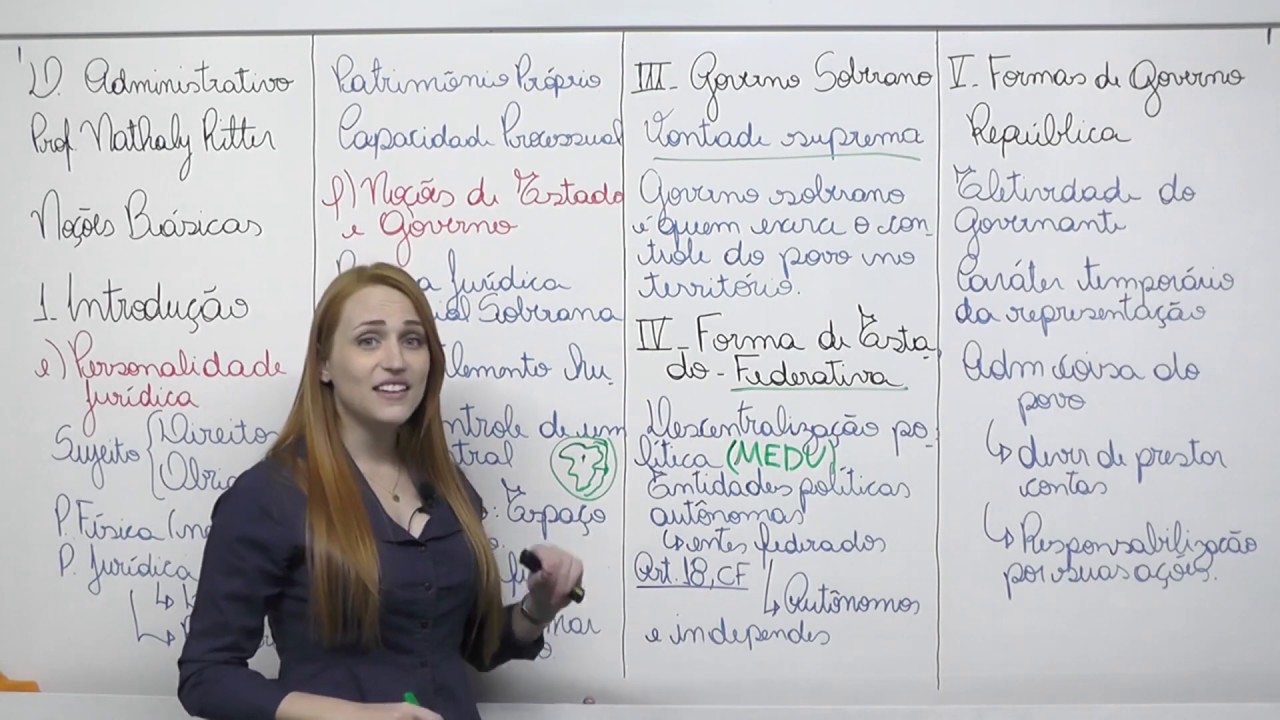 D. Administrativo
Prof. Nathaly Ritter
Noções Básicas
1. Introdução
e) Personalidade
Jurídica
Sujeito { Direitos
P. Física
P. Jurídica
Patrimônio Próprio
Capacidade Processual
f) Noções de Estado
e Governo
Jurídica
Soberana
de um
Espaço
III - Governo Soberano
Vontade suprema
Governo soberano
é quem exerce o con_
trole do povo no
território.
IV - Forma de Esta_
do - Federativa
Descentralização po_
lítica (MEDU)
Entidades políticas
autônomas
↳ entes federados
Art. 18, CF
↳ Autônomos
e independes
V - Formas de Governo
República
Eletividade do
Governante
Caráter temporário
da representação
Adm coisa do
povo
↳ dever de prestar
contas
↳ Responsabilização
por suas ações.